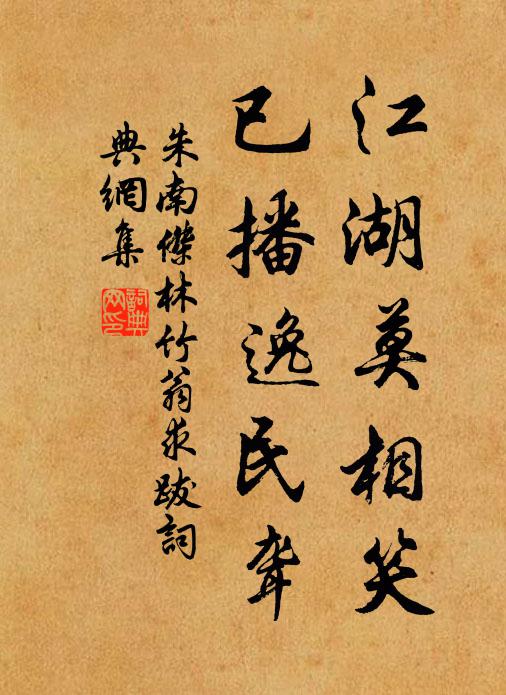 江湖莫相笑
已播逸民
朱南傑林竹翁求跋詞
典網集
詞典
网印